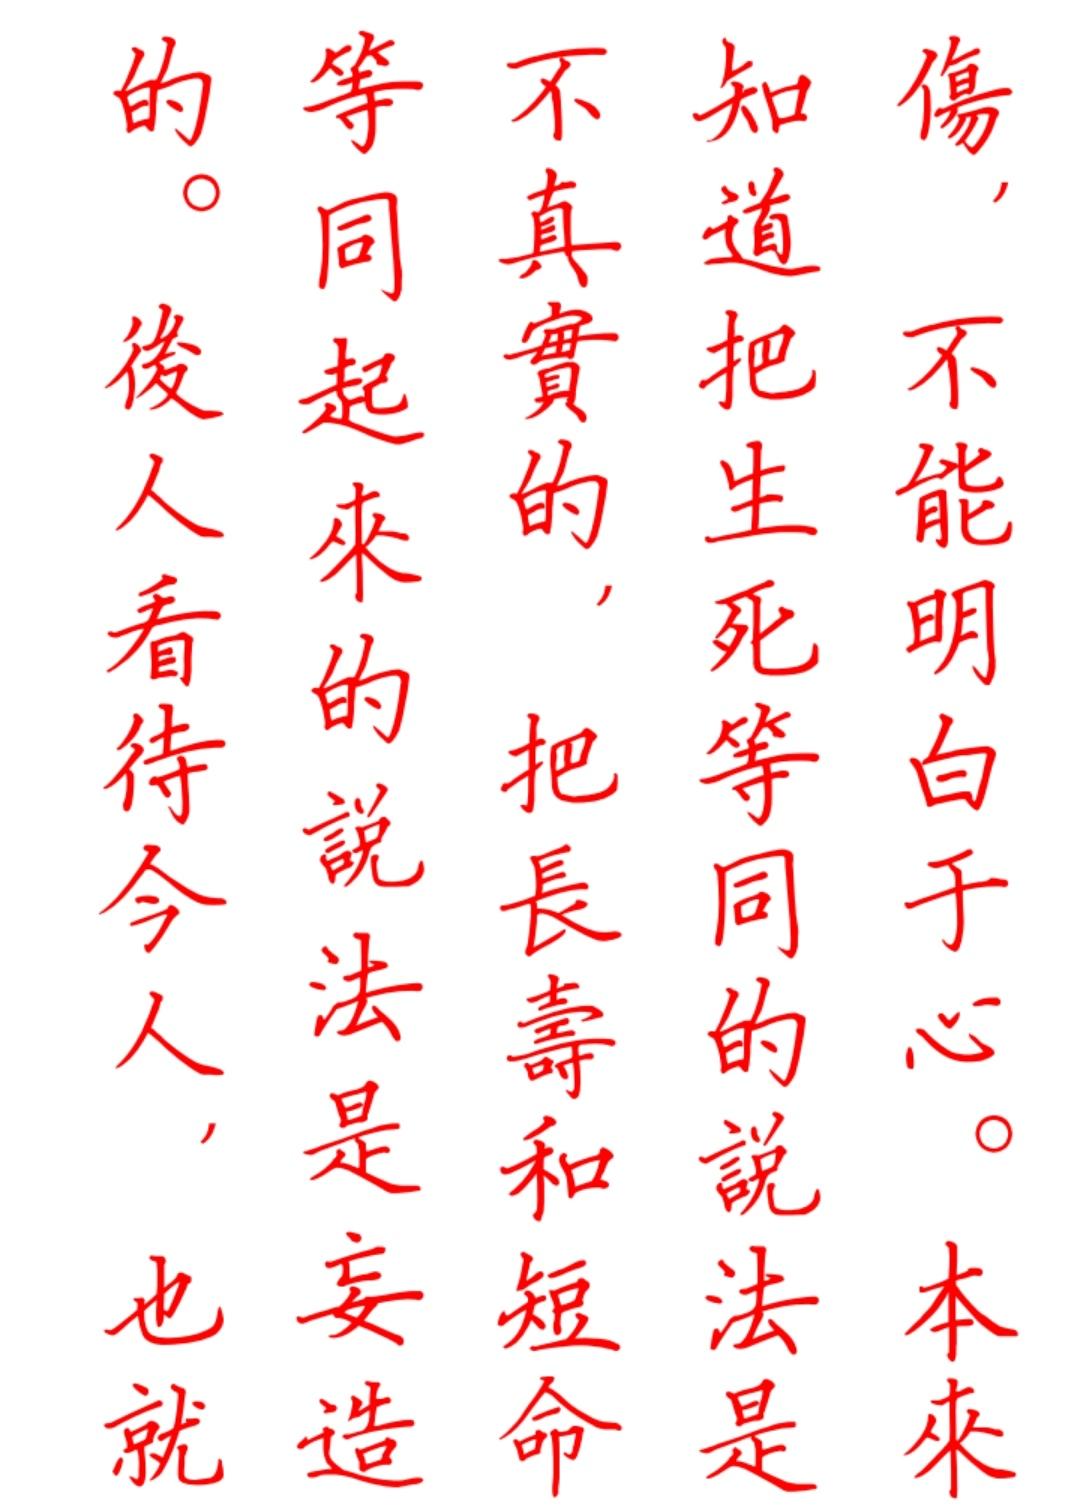 傷，不能明白于心。本來
知道把生死等同的説法是
不真實的，把長壽和短命
等同起來的説法是妄造
的。後人看待今人，也就